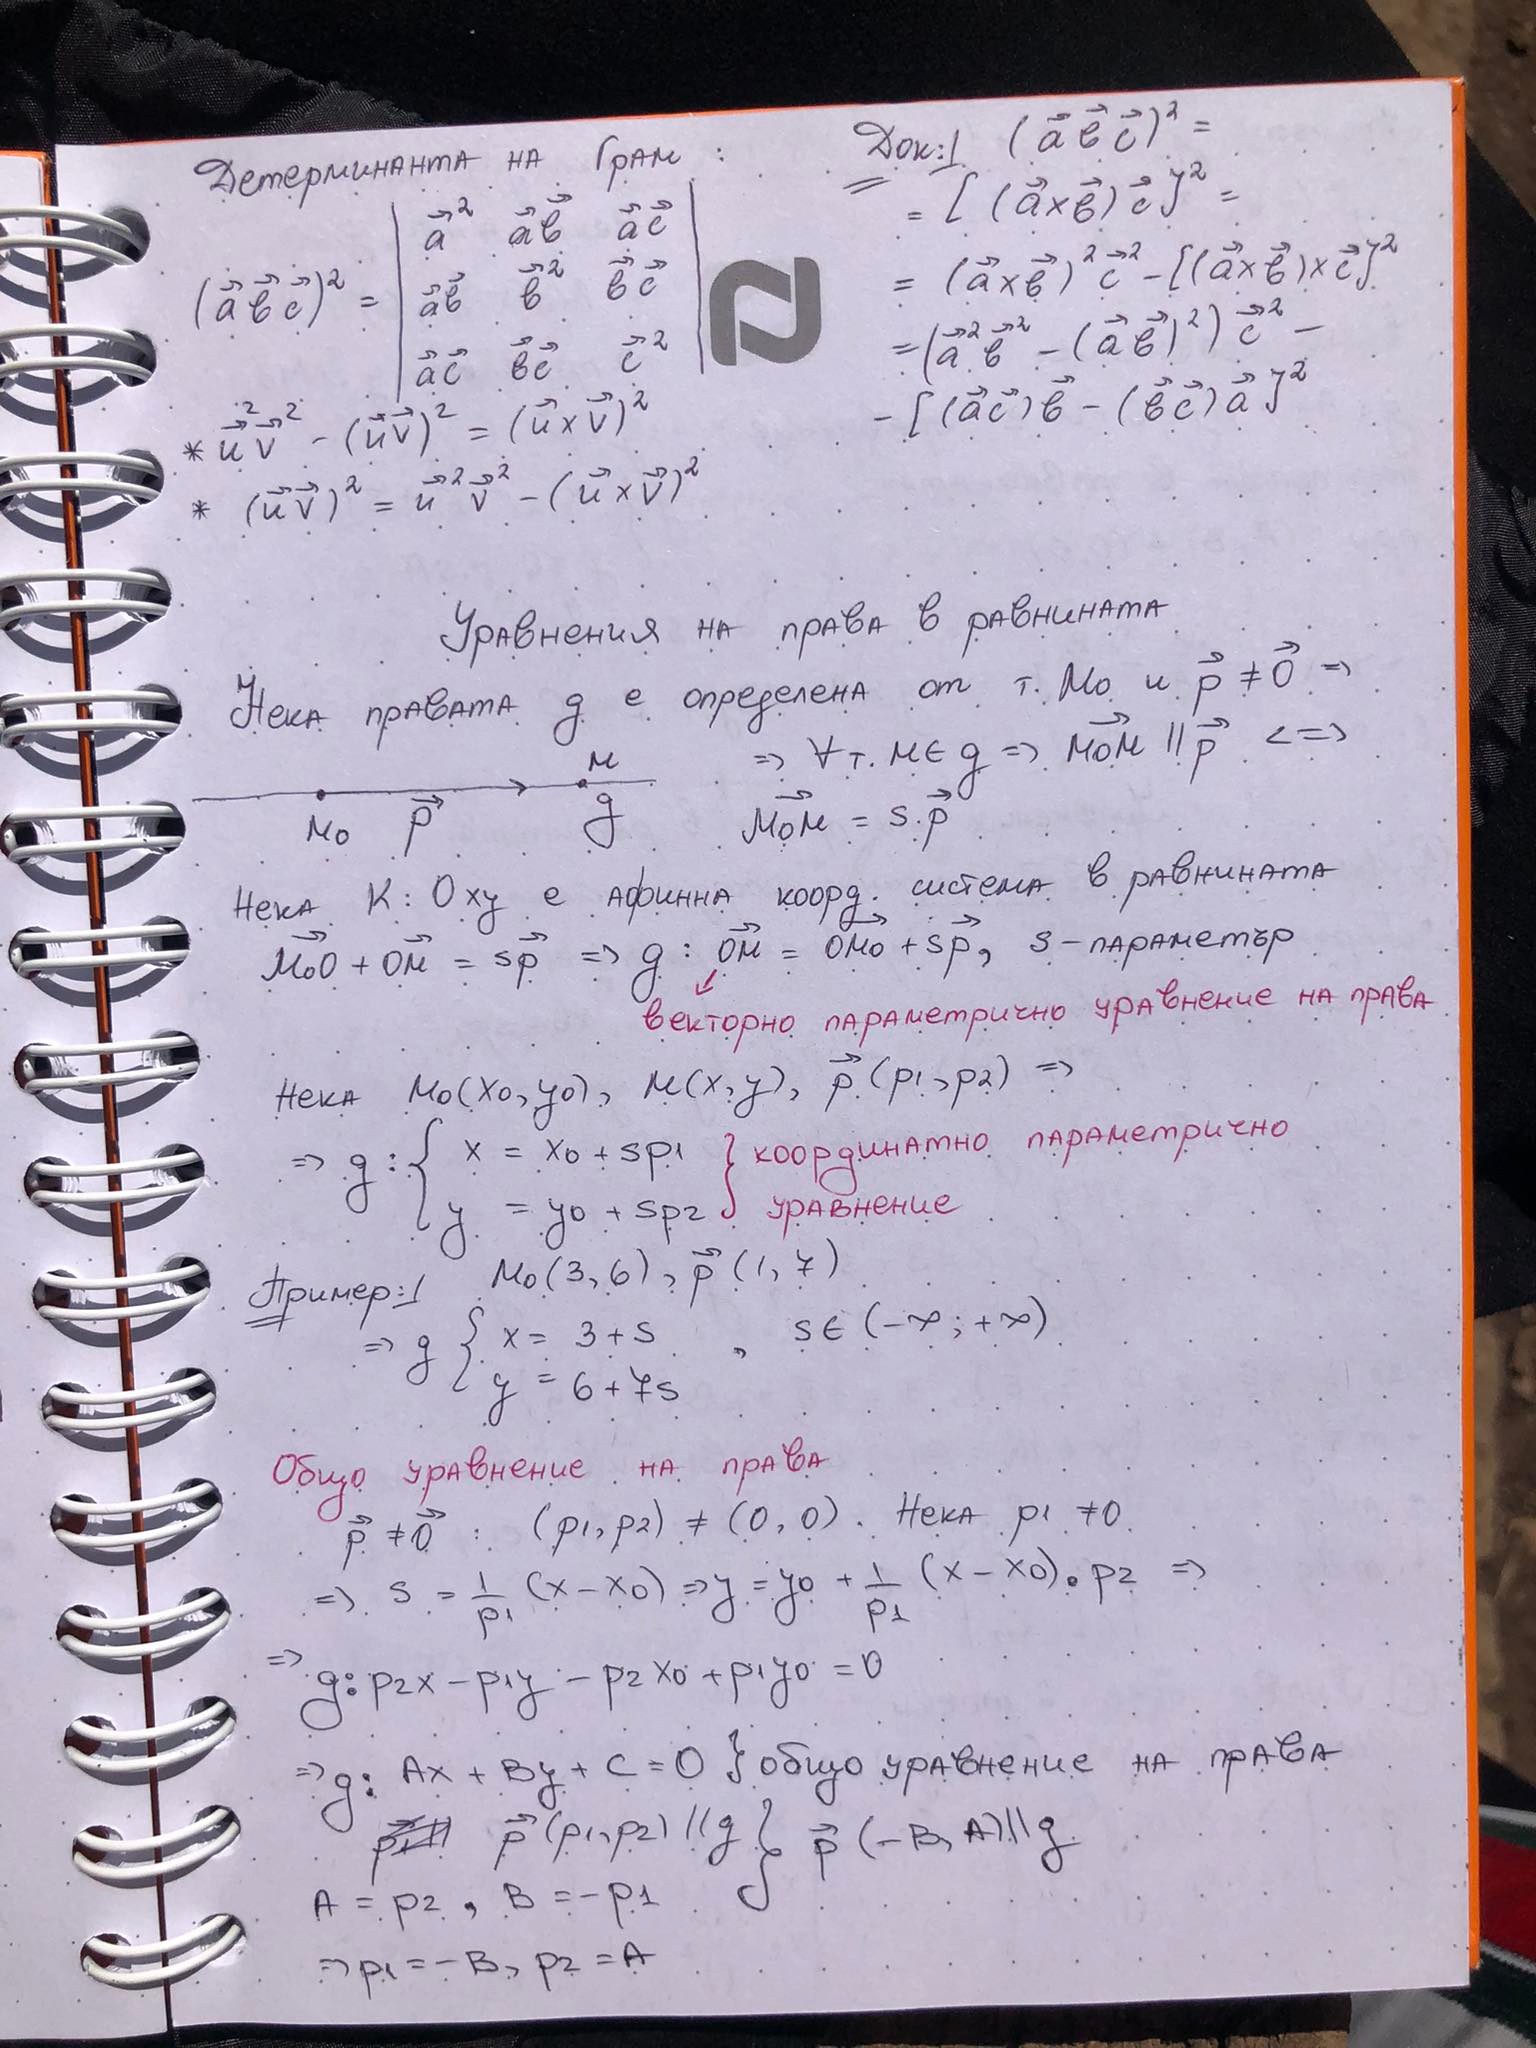 Детерминанта на Грам :
(a⃗ b⃗ c⃗)² = | a⃗² a⃗b⃗ a⃗c⃗ |
| a⃗b⃗ b⃗² b⃗c⃗ |
| a⃗c⃗ b⃗c⃗ c⃗² |
* u⃗²v⃗² - (u⃗v⃗)² = (u⃗×v⃗)²
* (u⃗v⃗)² = u⃗²v⃗² - (u⃗×v⃗)²
Док:1 (a⃗ b⃗ c⃗)² =
= [(a⃗×b⃗)c⃗]² =
= (a⃗×b⃗)²c⃗² - [(a⃗×b⃗)×c⃗]²
= (a⃗²b⃗² - (a⃗b⃗)²)c⃗² -
- [(a⃗c⃗)b⃗ - (b⃗c⃗)a⃗]²
Уравнения на права в равнината
Нека правата g е определена от т. M₀ и p⃗ ≠ 0⃗ =>
=> ∀ т. M ∈ g => M₀M⃗ || p⃗ <=>
M
M₀ p⃗ g
M₀M⃗ = s.p⃗
Нека K: Oxy е афинна коорд. система в равнината
M₀O⃗ + OM⃗ = sp⃗ => g : OM⃗ = OM₀⃗ + sp⃗, s - параметър
векторно параметрично уравнение на права
Нека M₀(x₀, y₀), M(x, y), p⃗(p₁, p₂) =>
=> g : { x = x₀ + sp₁ } координатно параметрично
y = y₀ + sp₂ уравнение
Пример:1 M₀(3, 6), p⃗(1, 7)
=> g { x = 3 + s , s ∈ (-∞; +∞)
y = 6 + 7s
Общо уравнение на права
p⃗ ≠ 0⃗ : (p₁, p₂) ≠ (0, 0). Нека p₁ ≠ 0
=> s = 1/p₁ (x - x₀) => y = y₀ + 1/p₁ (x - x₀) . p₂ =>
=> g: p₂x - p₁y - p₂x₀ + p₁y₀ = 0
=> g: Ax + By + C = 0 } общо уравнение на права
p⃗(p₁, p₂) || g } p⃗(-B, A) || g
A = p₂, B = -p₁
=> p₁ = -B, p₂ = A